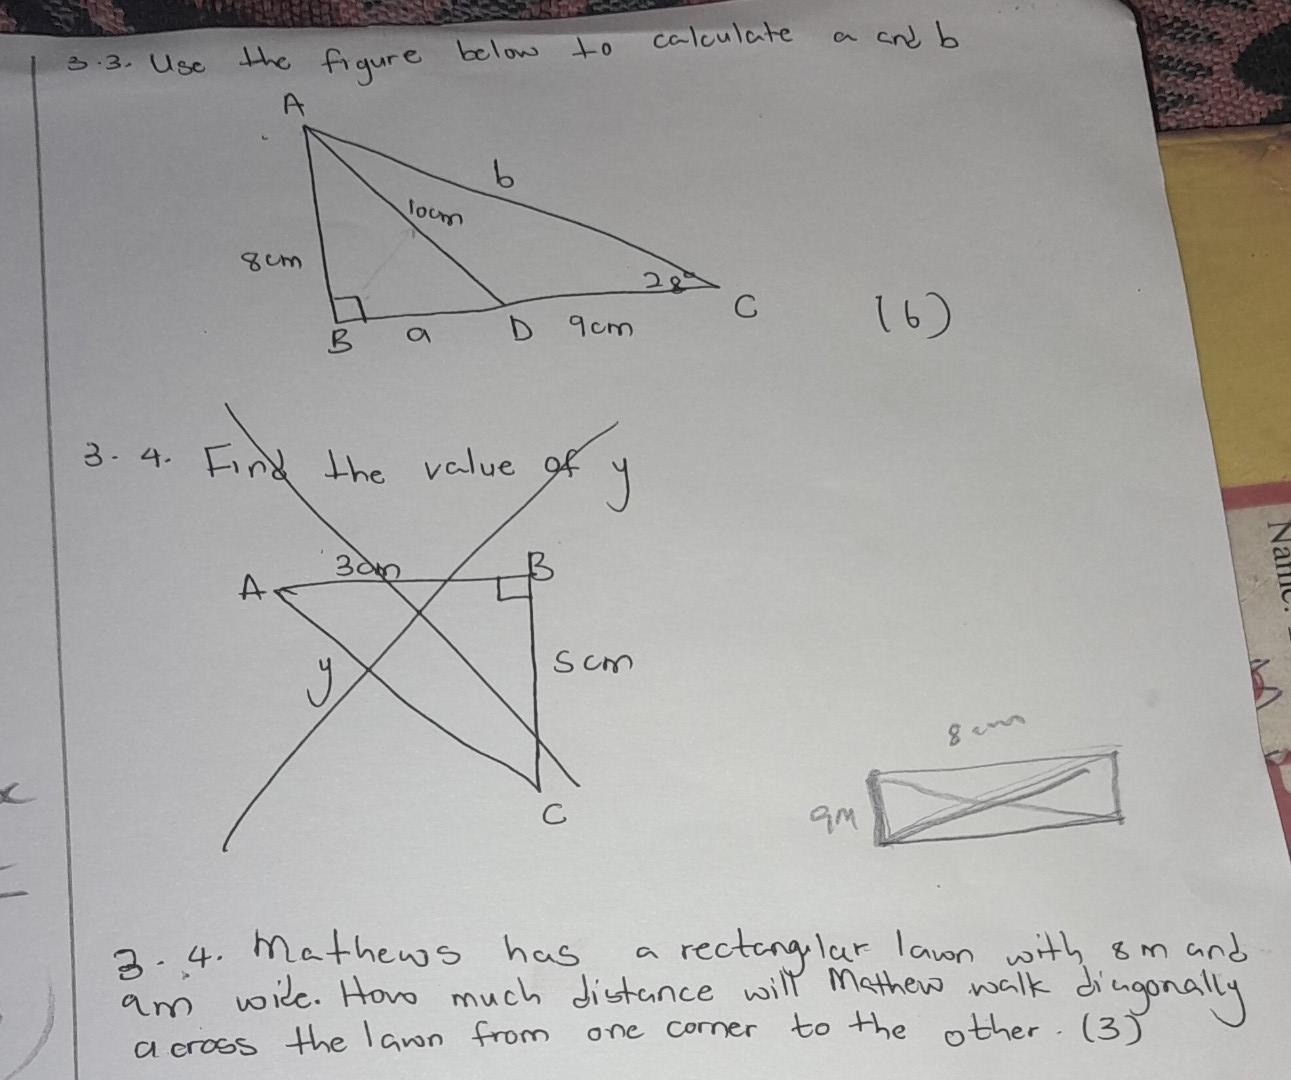 3.3. Use the figure below to calculate a and b
A
b
10cm
8cm
28°
B a D 9cm C (6)
3.4. Find the value of y
A 3cm B
y
5cm
C
8cm
9m
3.4. Mathews has a rectangular lawn with 8m and
9m wide. How much distance will Mathew walk diagonally
across the lawn from one corner to the other. (3)
Name: